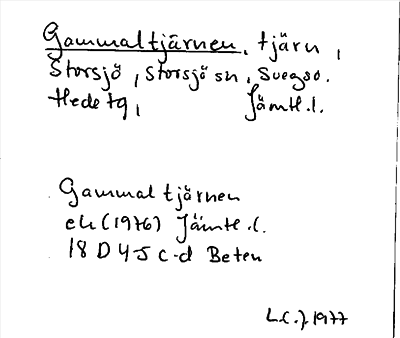 Gammaltjärnen, tjärn,
Storsjö, Storsjö sn, Svegs d.
Hede tg, Jämtl. l.
Gammaltjärnen
ek (1976) Jämtl. l.
18 D 4-5 c-d Beten
L.C.J. 1977